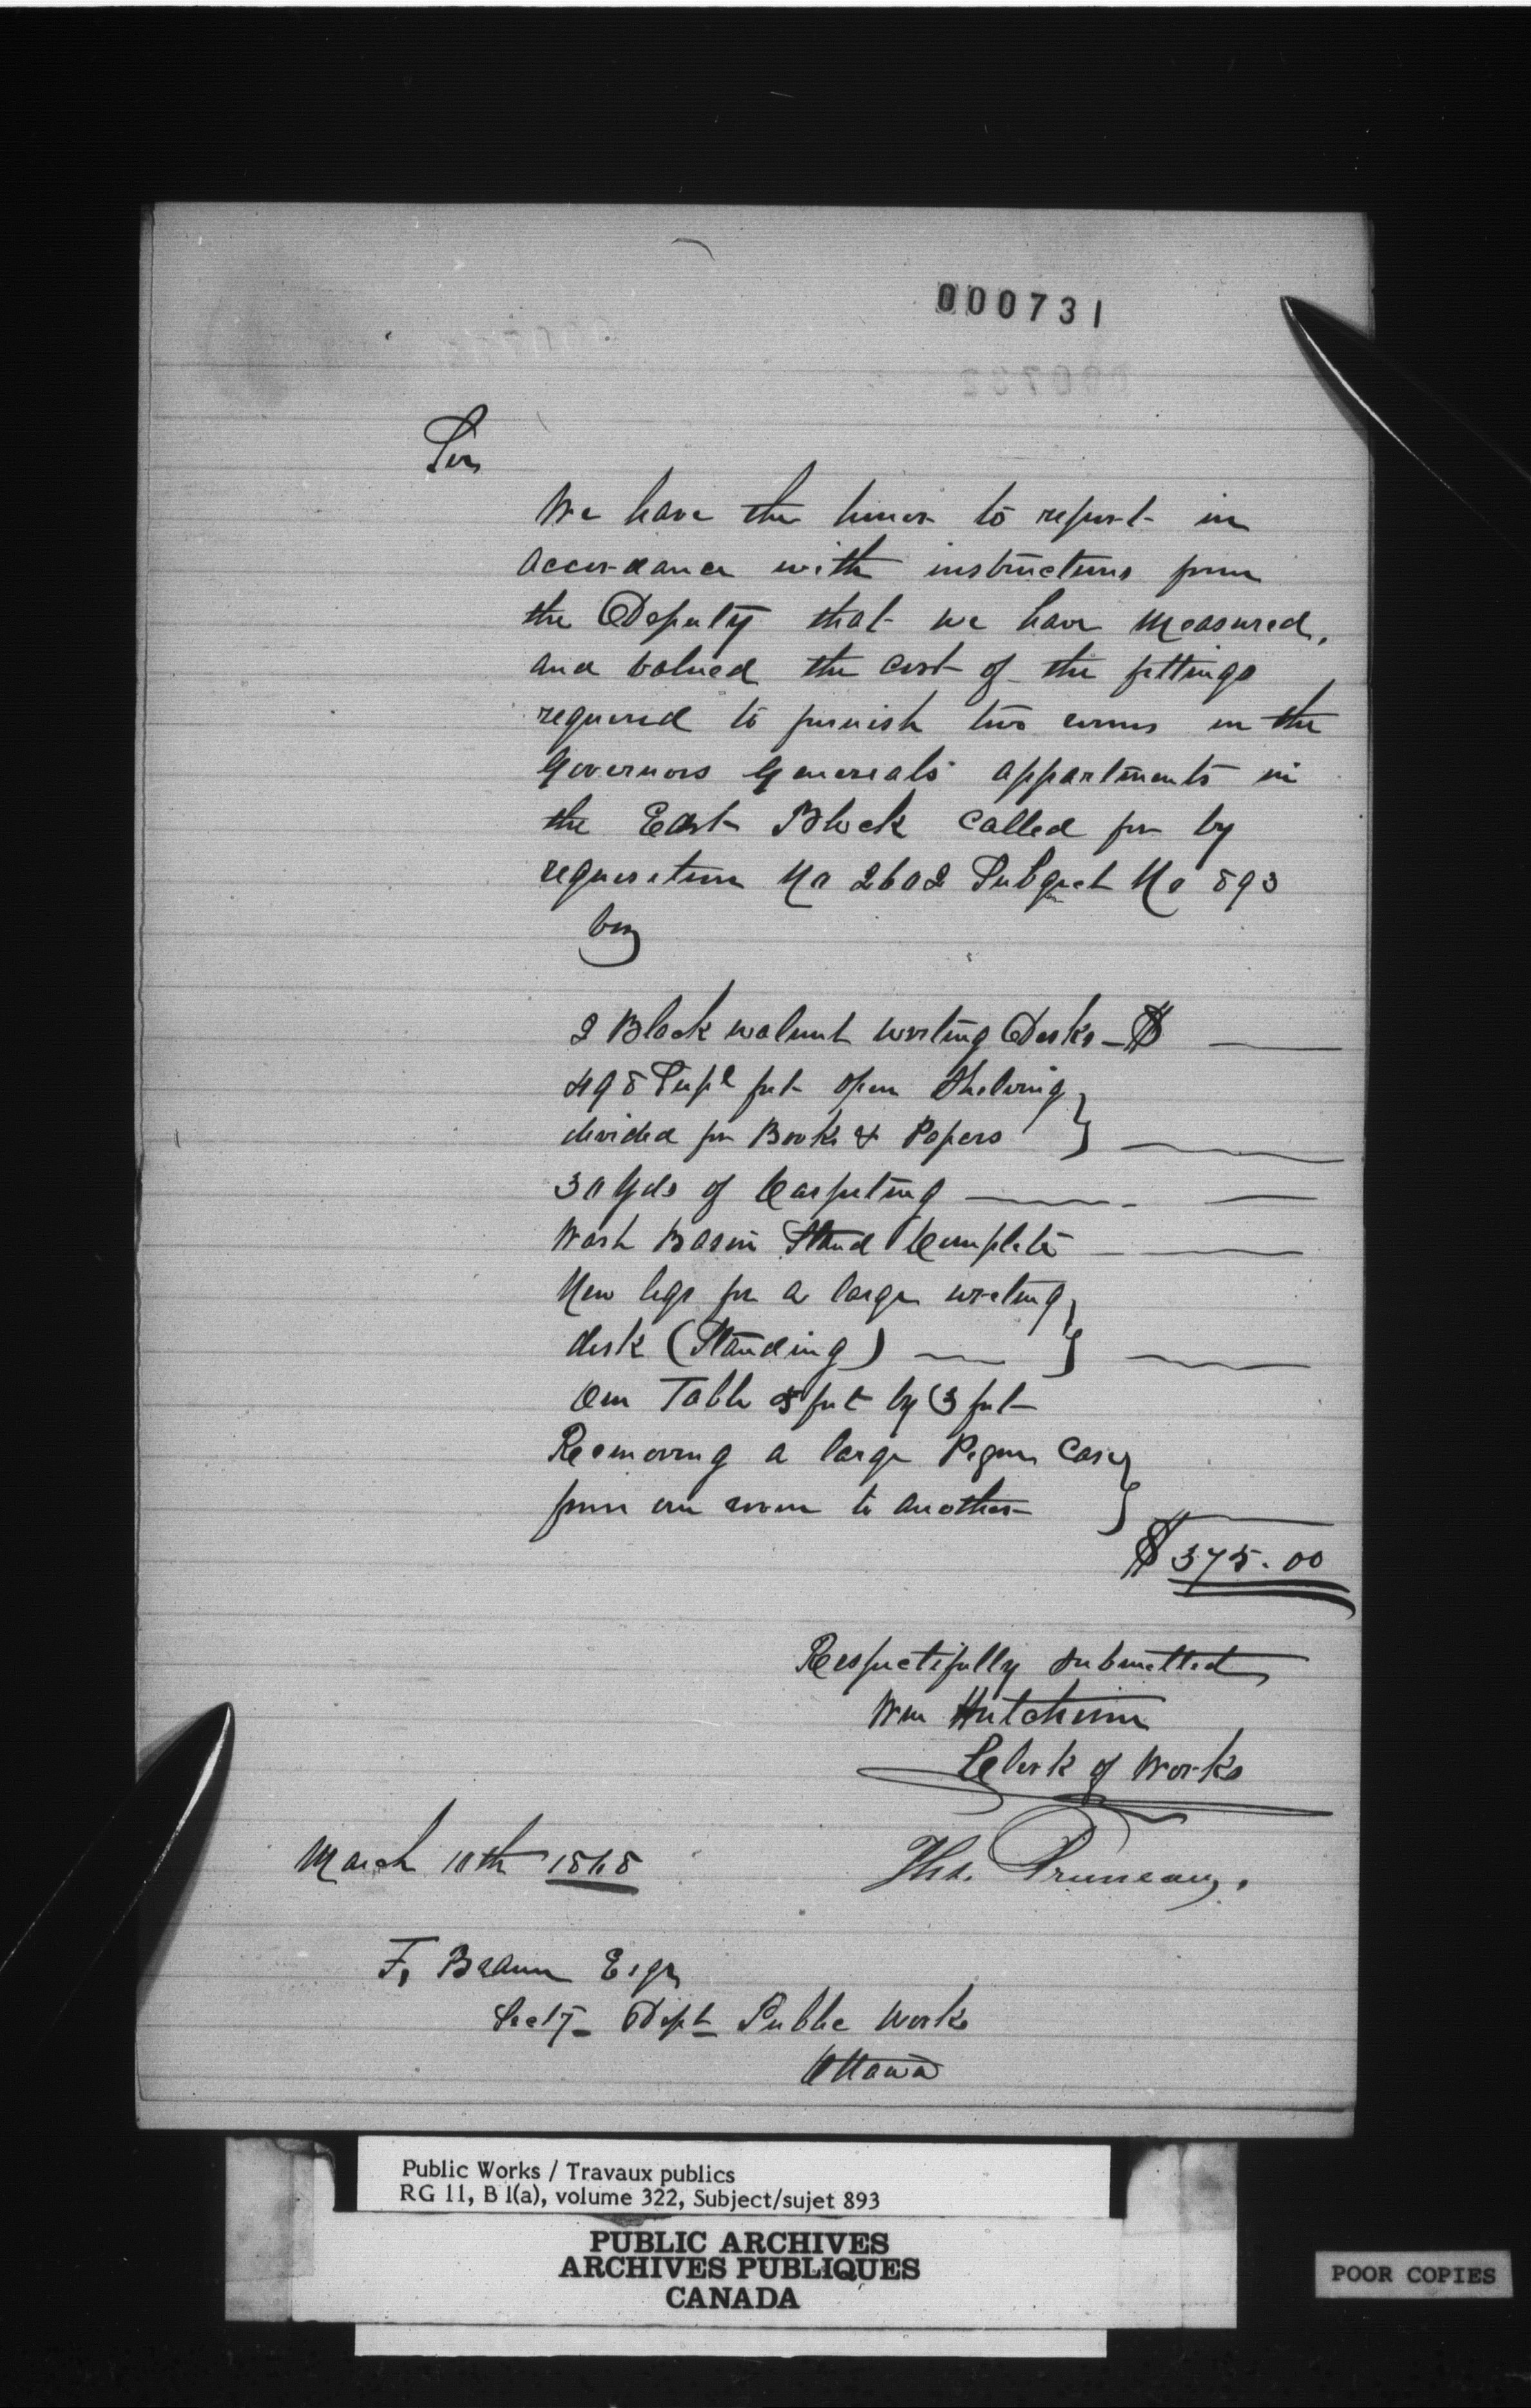 000731
Sir
We have the honor to report in
accordance with instructions from
the Deputy that we have measured,
and valued the cost of the fittings
required to furnish two rooms in the
Governors Generals appartments in
the East Block called for by
requisition No 2602 Subject No 893
viz
2 Black walnut writing Desks - $
498 Supl feet open Shelving
devided for Books & Papers
30 Yds of Carpeting
Wash Basin Stand Complete
New legs for a large writing
desk (Standing)
One Table 5 feet by 3 feet
Removing a large Pigeon Case
from one room to another
$ 375.00
Respectifully submitted
Wm Hutchison
Clerk of Works
March 10th 1868
Thos. Pruneau.
F. Braun Esqr
Secty Dept Public Works
Ottawa
Public Works / Travaux publics
RG 11, B 1(a), volume 322, Subject/sujet 893
PUBLIC ARCHIVES
ARCHIVES PUBLIQUES
CANADA
POOR COPIES